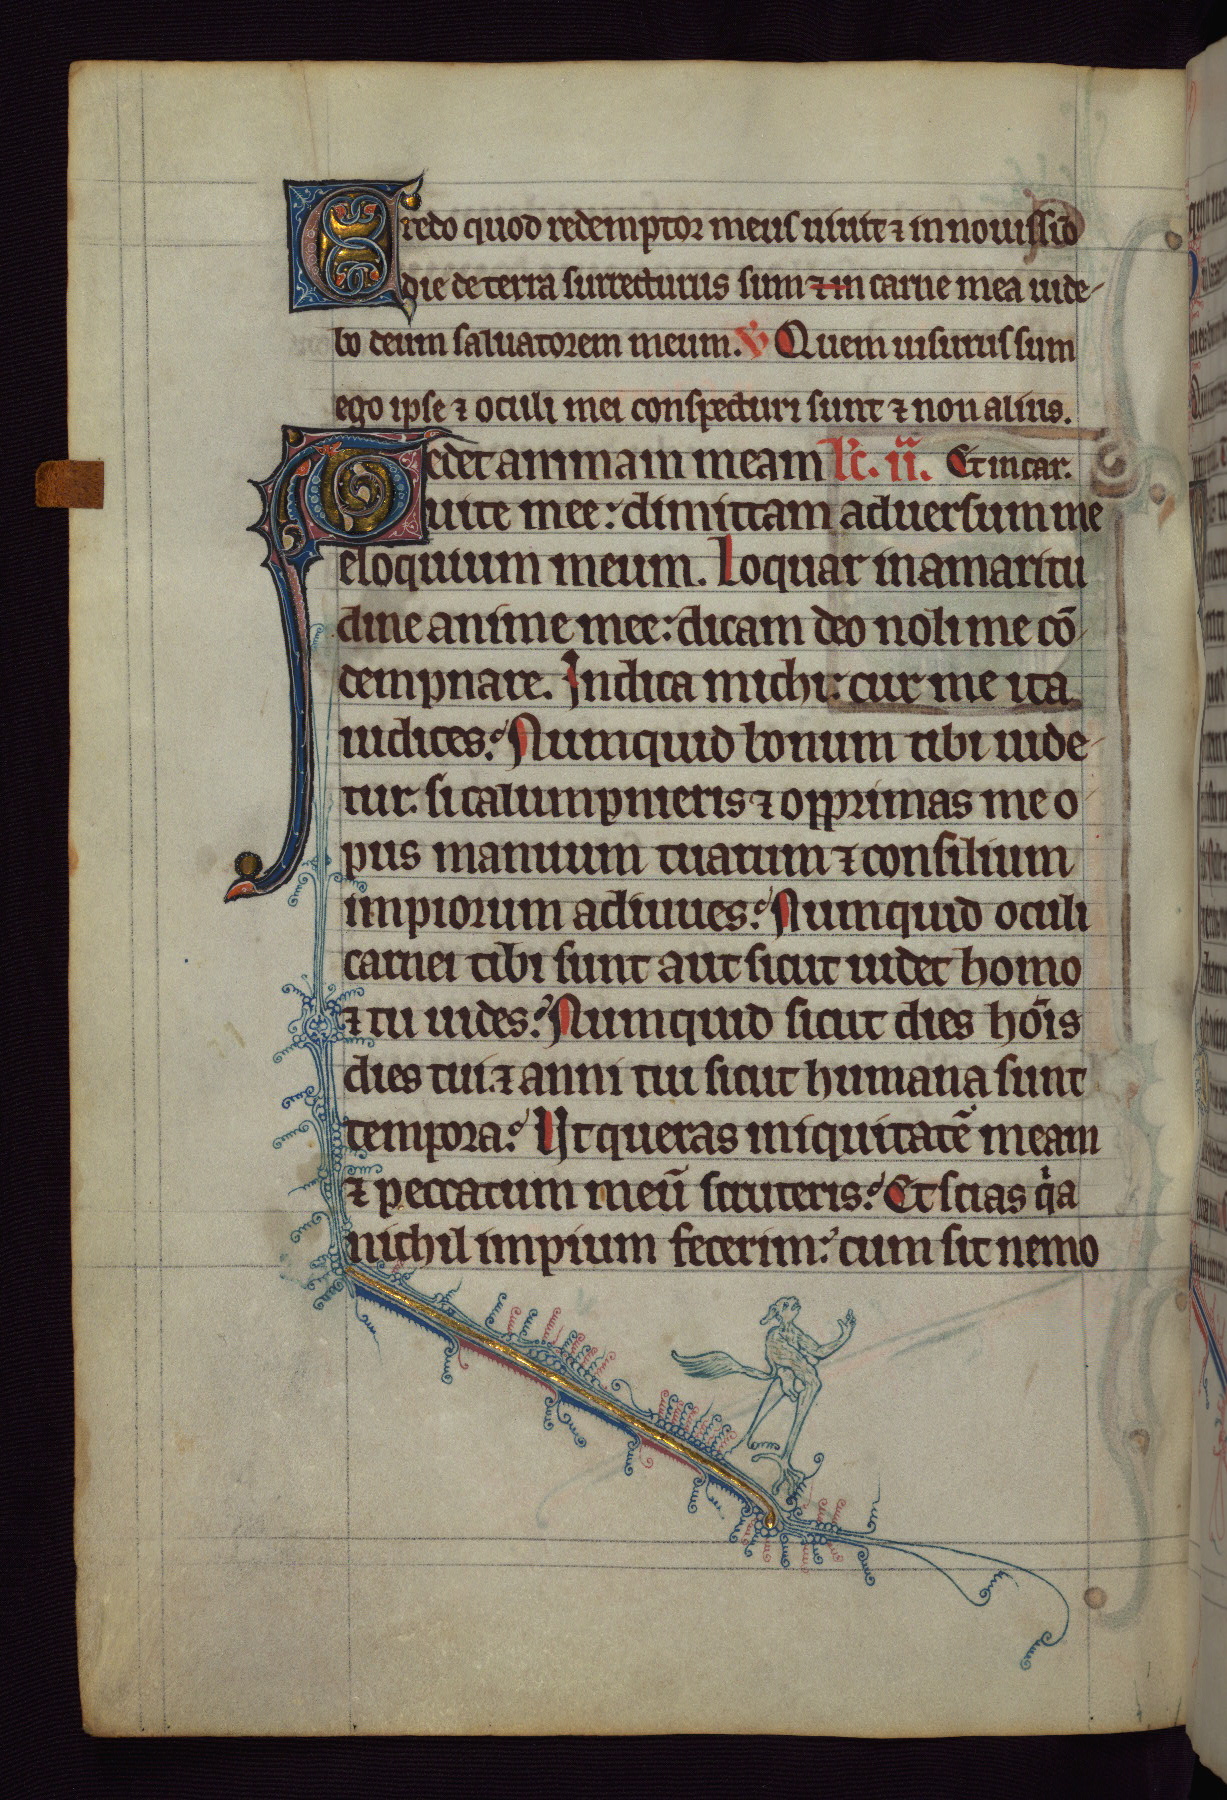 Credo quod redemptor meus uiuit ⁊ in nouissīo
die de terra surrecturus sum ⁊ in carne mea uide-
bo deum saluatorem meum. V Quem uisurus sum
ego ipse ⁊ oculi mei conspecturi sunt ⁊ non alius.
Tedet animam meam lc̄. ii. Et in car.
uite mee: dimittam aduersum me
eloquium meum. Loquar in amaritu
dine anime mee: dicam deo noli me cō-
dempnare. Indica michi: cur me ita
iudices? Numquid bonum tibi uide-
tur: si calumpnieris ⁊ opprimas me o
pus manuum tuarum ⁊ consilium
impiorum adiuues? Numquid oculi
carnei tibi sunt aut sicut uidet homo
⁊ tu uides? Numquid sicut dies hoīs
dies tui: ⁊ anni tui sicut humana sunt
tempora? Ut queras iniquitatē meam
⁊ peccatum meū scruteris? Et scias qia
nichil impium fecerim: cum sit nemo